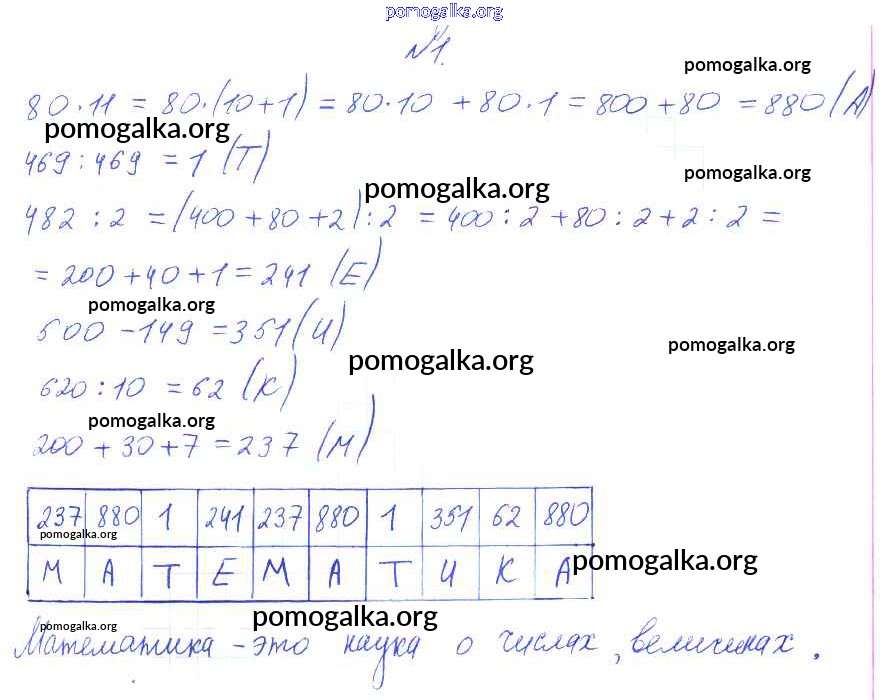 pomogalka.org
№1.
pomogalka.org
80·11 = 80·(10+1) = 80·10 + 80·1 = 800+80 = 880 (А)
pomogalka.org
469:469 = 1 (Т)
pomogalka.org
pomogalka.org
482 : 2 = (400+80+2) : 2 = 400 : 2 + 80 : 2 + 2 : 2 =
= 200+40+1 = 241 (Е)
pomogalka.org
500 - 149 = 351 (И)
pomogalka.org
pomogalka.org
620:10 = 62 (К)
pomogalka.org
200 + 30 + 7 = 237 (М)
237 880 1 241 237 880 1 351 62 880
pomogalka.org
М А Т Е М А Т И К А
pomogalka.org
pomogalka.org
pomogalka.org
Математика - это наука о числах, величинах.